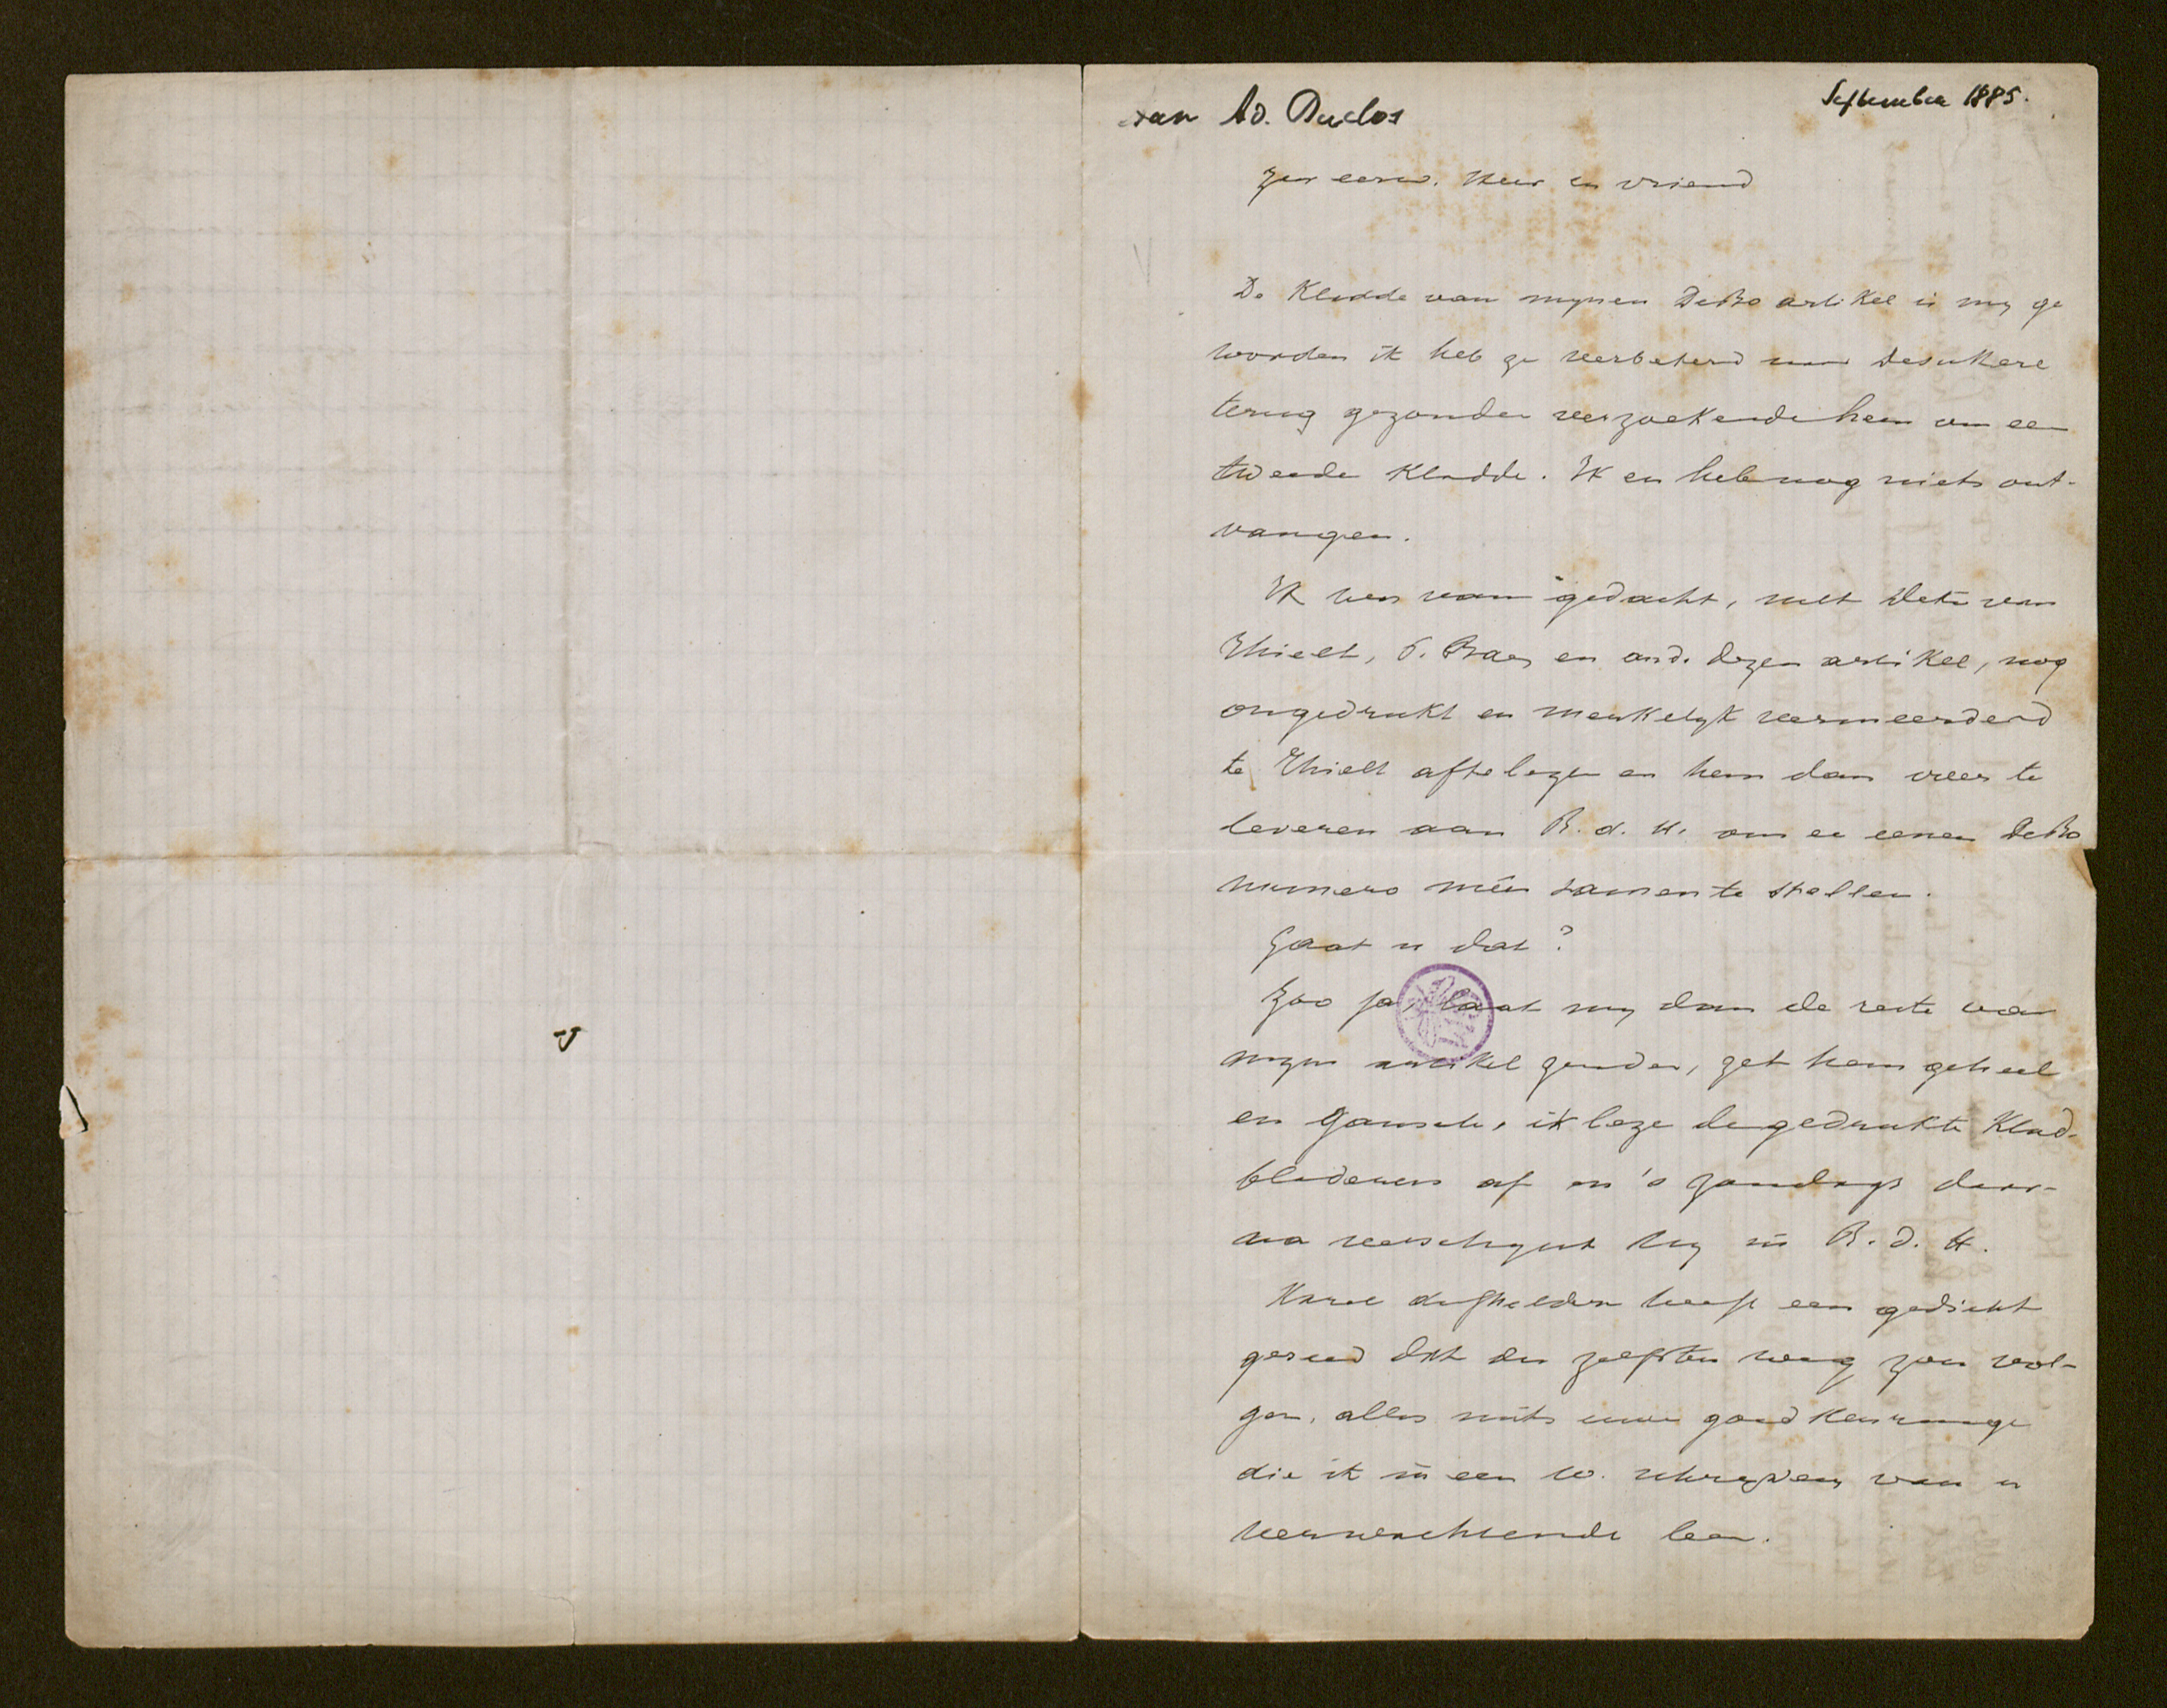 van Ad. Duclos
September 1885.
Zeer eerw. Heer en vriend
De Kladde van mynen DeBo artikel is my ge
worden ik heb ze verbeterd
terug gezonden verzoekende hem om een
tweede Kladde. Ik en heb nog niets ont-
vangen.
Ik was van gedacht, met van
Thielt, en and. dezen artikel, nog
ongedrukt en merkelyk vermeerderd
te Thielt aftelezen en hem dan weer te
leveren aan R. d. H. om er eenen DeBo
numero mêe samen te stellen.
Gaat u dat?
Zoo ja, laat my dan de reste van
mynen artikel zenden, zet hem geheel
en gansch, ik leze de gedrukte Klad-
bladeren af en 's zondags daar-
na verschynt hy in R. d. H.
Karel heeft een gedicht
gereed dat den zelfsten weg zou vol-
gen, alles mits uwe goedkeuringe
die ik in een w. van u
verwachtende ben.